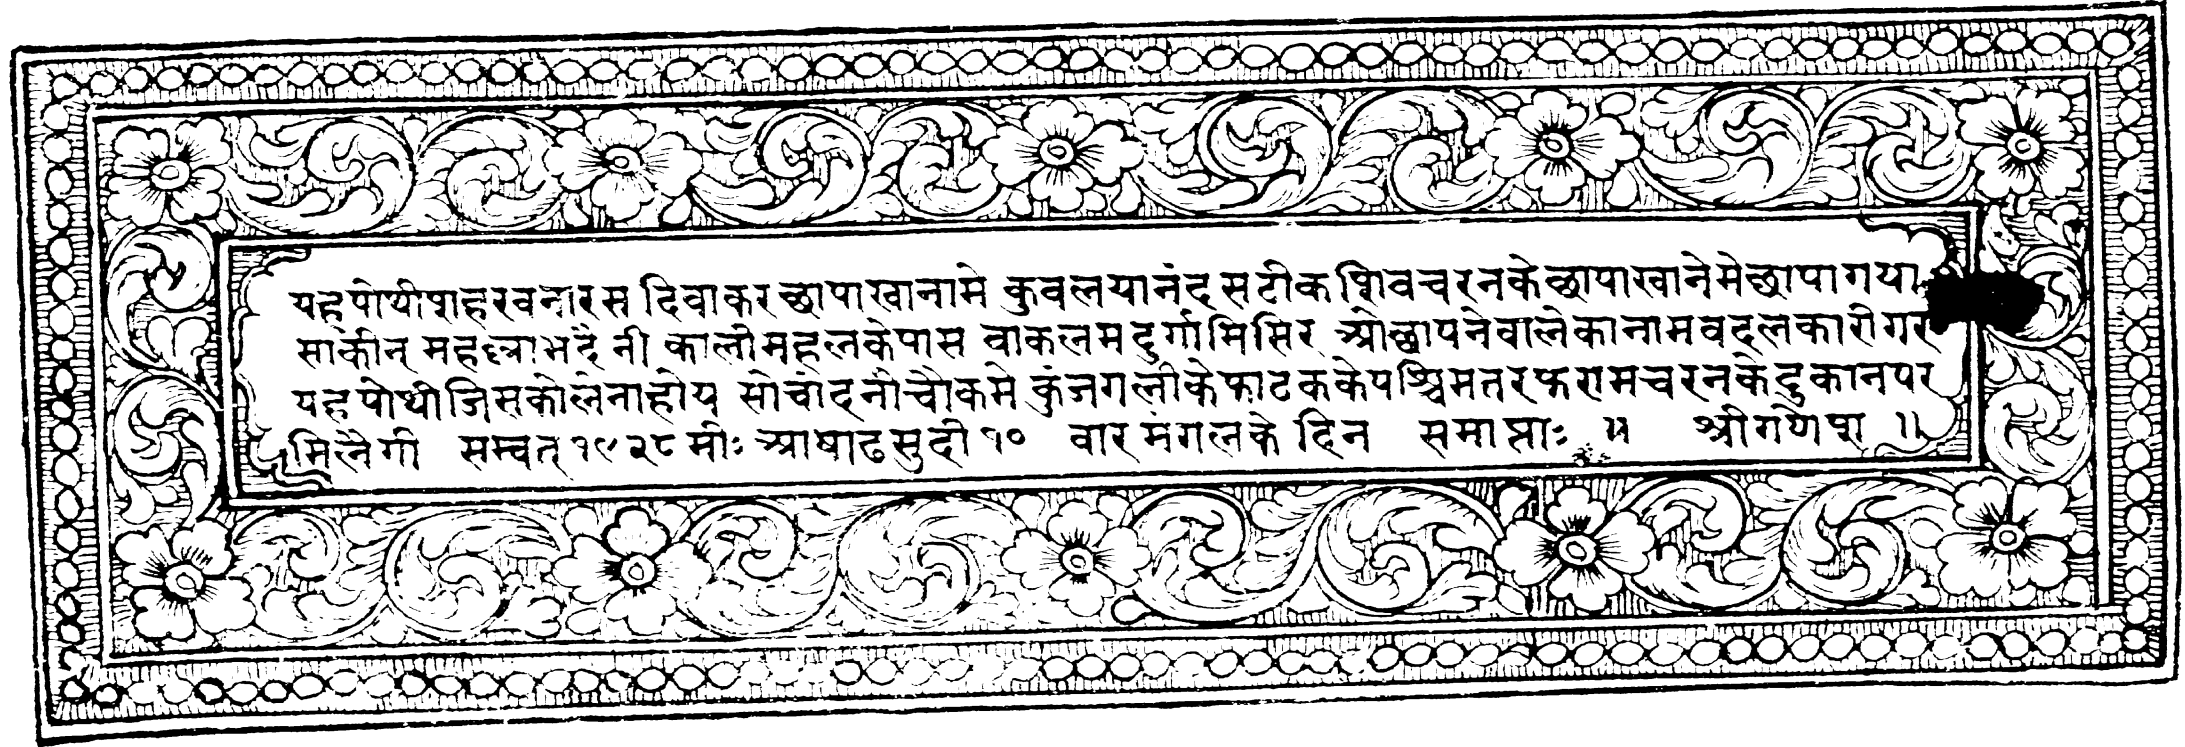 यहपोथीशहरवनारस दिवाकर छापाखानामे कुवलयानंद सटीक शिवचरनकेछापाखानेमेछापागया
साकीन महल्ला भदैनी कालीमहलकेपास वाकलम दुर्गामिसिर औछापनेवालेकानाम वदलकारीगर
यहपोथीजिसकोलेनाहोय सोचांदनीचौकमे कुंजगलीकेफाटककेपश्चिमतरफरामचरनकेदुकानपर
मिलैगी सम्वत् १९२८ मीः आषाढसुदी १० वार मंगलके दिन समाप्ताः ॥ श्रीगणेश ॥